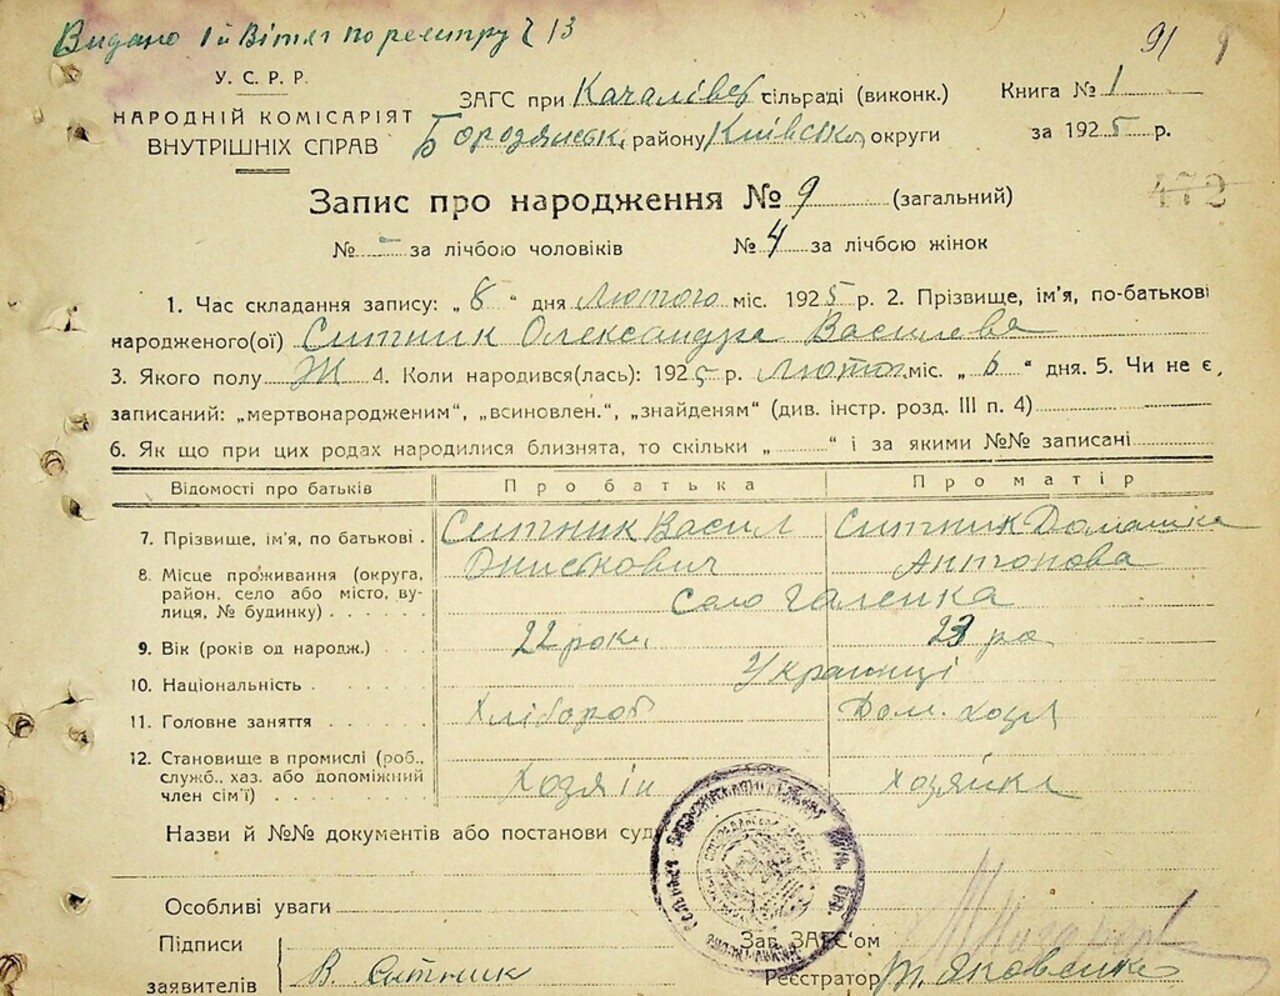 Видано 1й Витяг по реєстру Ч 13
91 9
У. С. Р. Р.
НАРОДНІЙ КОМІСАРІЯТ
ВНУТРІШНІХ СПРАВ
ЗАГС при Качалівс сільраді (виконк.)
Бородянськ. району Київської округи
Книга № 1
за 1925 р.
Запис про народження № 9 (загальний)
472
№ - за лічбою чоловіків № 4 за лічбою жінок
1. Час складання запису: „8“ дня Лютого міс. 1925 р. 2. Прізвище, ім'я, по-батькові
народженого(ої) Ситник Олександра Василева
3. Якого полу Ж 4. Коли народився(лась): 1925 р. Лютог. міс. „6“ дня. 5. Чи не є,
записаний: „мертвонародженим“, „всиновлен.“, „знайденям“ (див. інстр. розд. III п. 4)
6. Як що при цих родах народилися близнята, то скільки „ “ і за якими №№ записані
Відомості про батьків Про батька Про матір
7. Прізвище, ім'я, по батькові . Ситник Васил Ситник Домашка
Антонова
8. Місце проживання (округа,
район, село або місто, ву-
лиця, № будинку) . . . . . . Село Галенка
9. Вік (років од народж.) . . . 22 рок. 23 ро
10. Національність . . . . . . Українці
11. Головне заняття . . . . . . Хлібороб Дом. хозя
12. Становище в промислі (роб.,
служб., хаз. або допоміжний
член сім'ї) . . . . . . . . . Хозяін Хозяйка
Назви й №№ документів або постанови суд
Особливі уваги
Підписи
заявителів В. Ситник
Зав. ЗАГС'ом
Реєстратор Яковенко